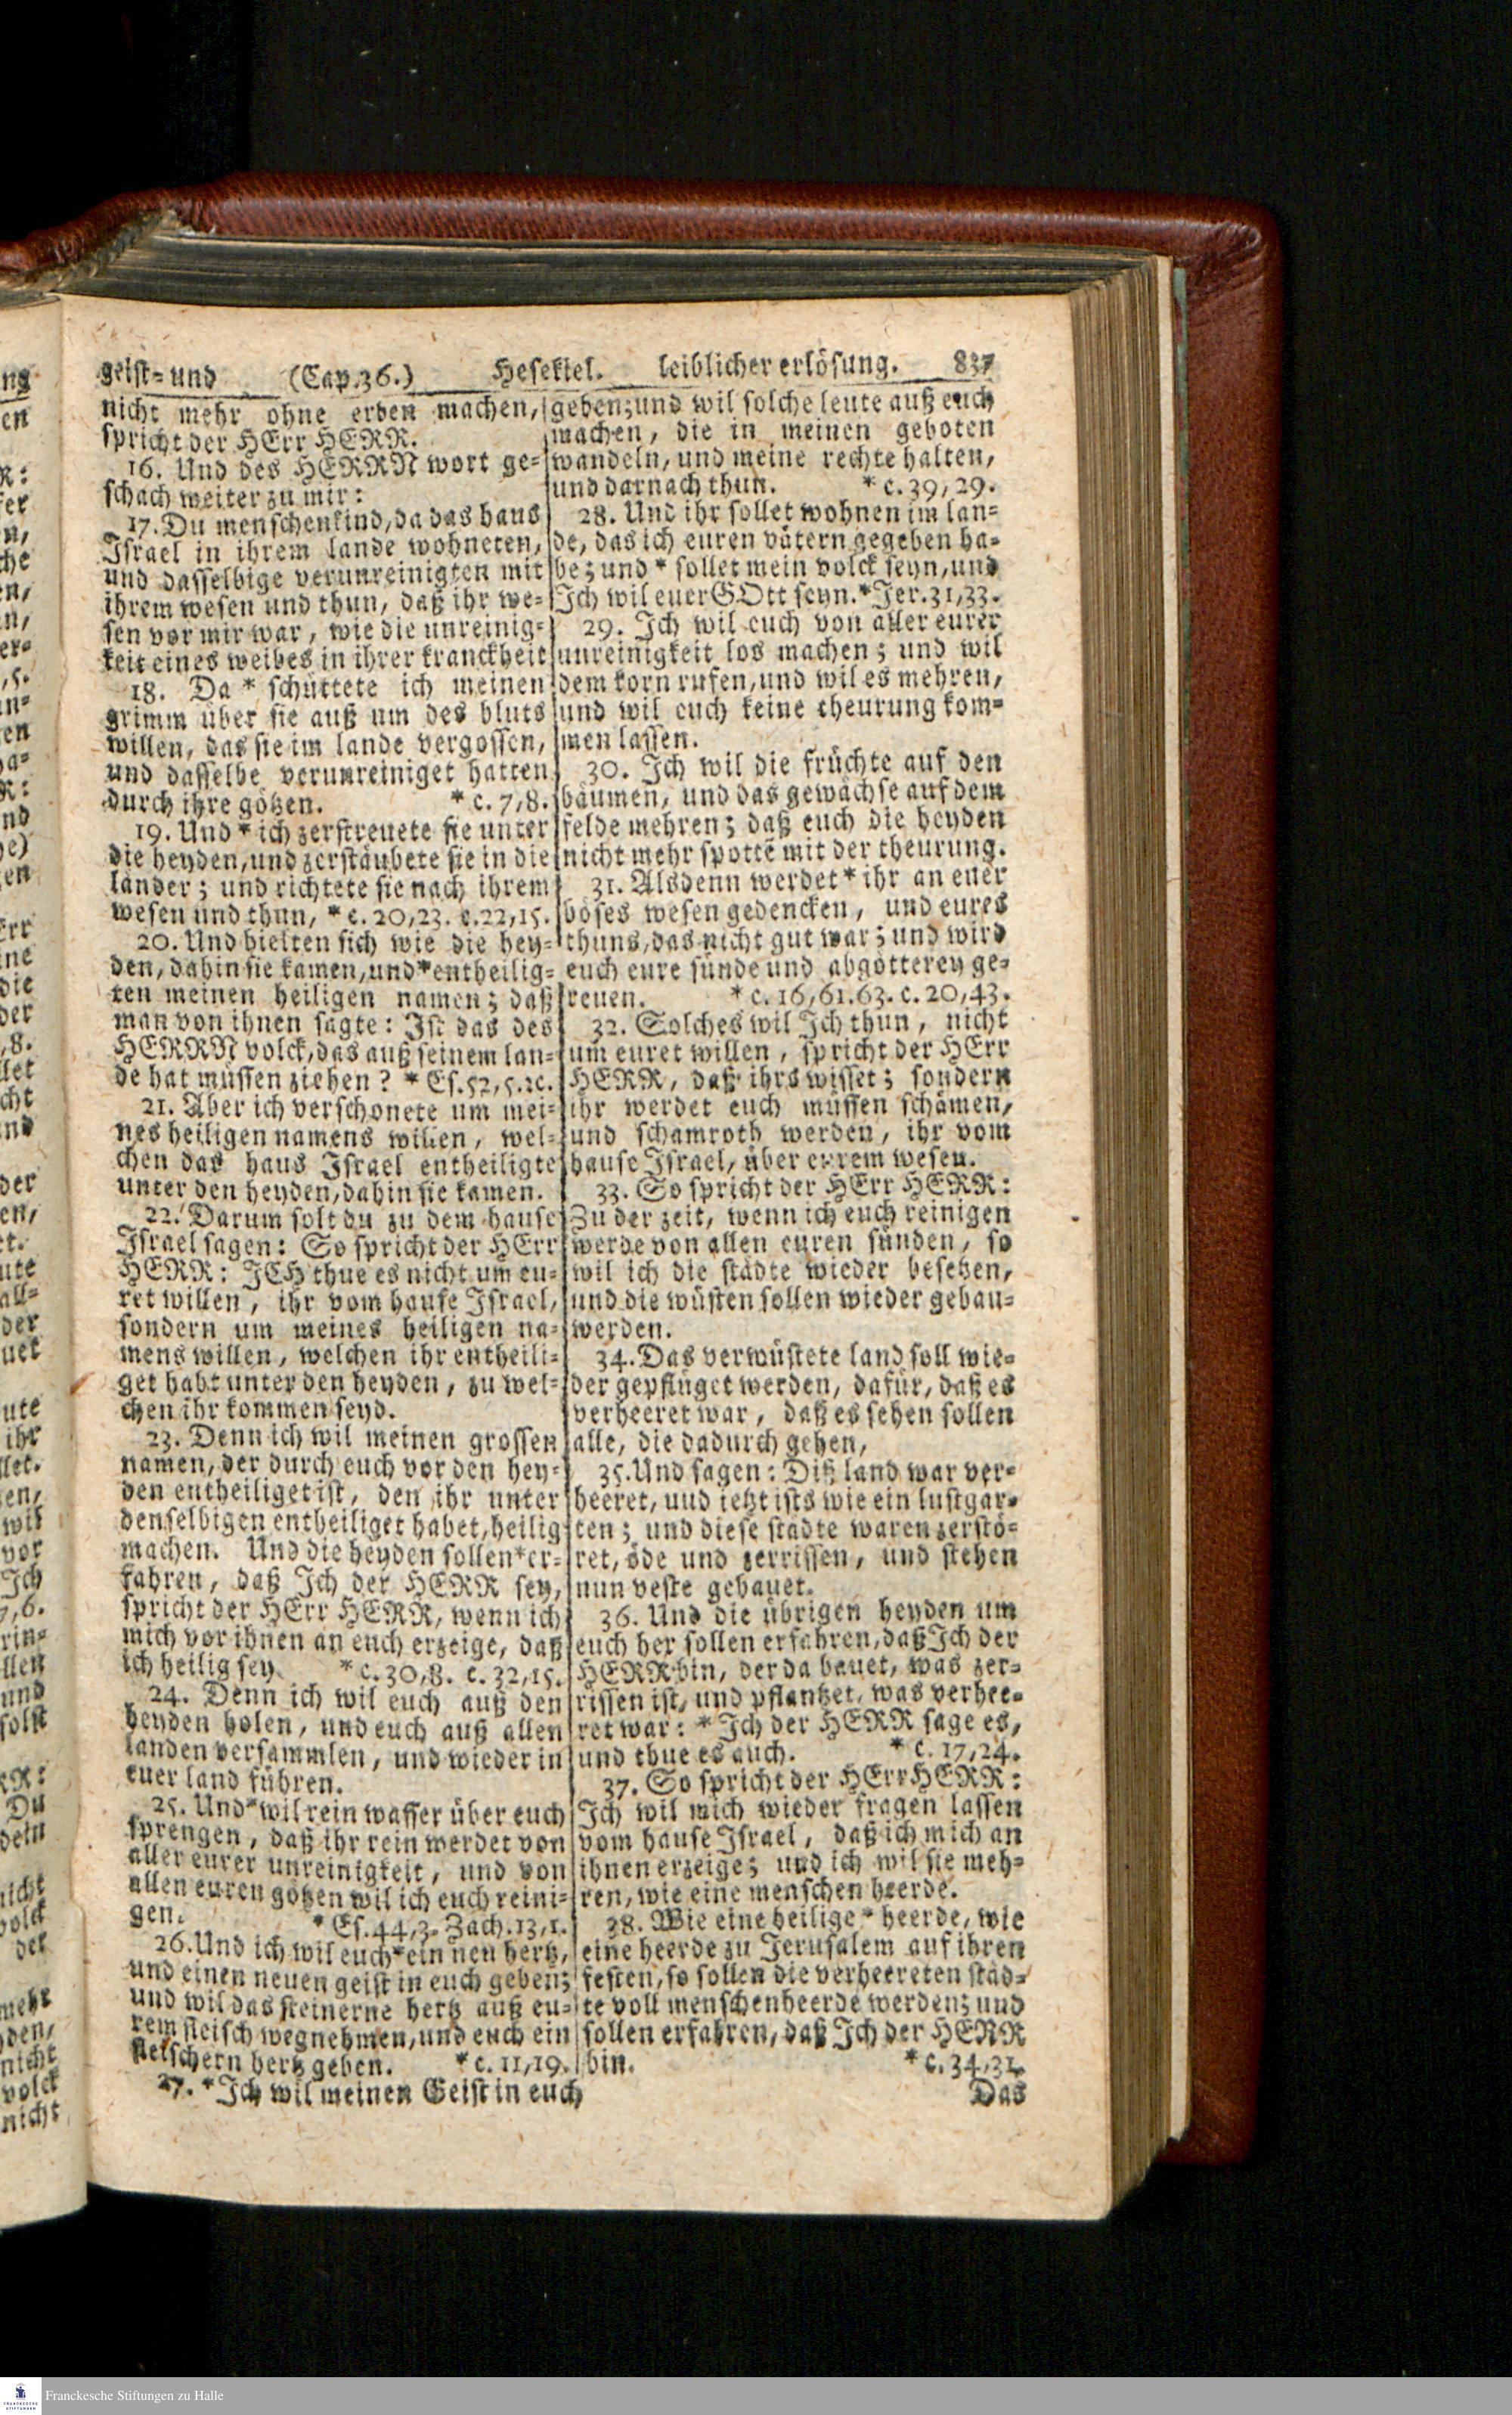 geist- und (Cap. 36.) Hesekiel. leiblicher erlösung. 837
nicht mehr ohne erben machen,
spricht der HErr HERR.
16. Und des HERRN wort ge-
schach weiter zu mir:
17. Du menschenkind, da das haus
Israel in ihrem lande wohneten,
und dasselbige verunreinigten mit
ihrem wesen und thun, daß ihr we-
sen vor mir war, wie die unreinig-
keit eines weibes in ihrer kranckheit
18. Da * schüttete ich meinen
grimm über sie auß um des bluts
willen, das sie im lande vergossen,
und dasselbe verunreiniget hatten
durch ihre götzen. * c. 7, 8.
19. Und * ich zerstreuete sie unter
die heyden, und zerstäubete sie in die
länder; und richtete sie nach ihrem
wesen und thun, * c. 20, 23. c. 22, 15.
20. Und hielten sich wie die hey-
den, dahin sie kamen, und * entheilig-
ten meinen heiligen namen; daß
man von ihnen sagte: Ist das des
HERRN volck, das auß seinem lan-
de hat müssen ziehen? * Es. 52, 5. 2c.
21. Aber ich verschonete um mei-
nes heiligen namens willen, wel-
chen das haus Israel entheiligte
unter den heyden, dahin sie kamen.
22. Darum solt du zu dem hause
Israel sagen: So spricht der HErr
HERR: JCH thue es nicht um eu-
ret willen, ihr vom hause Israel,
sondern um meines heiligen na-
mens willen, welchen ihr entheili-
get habt unter den heyden, zu wel-
chen ihr kommen seyd.
23. Denn ich wil meinen grossen
namen, der durch euch vor den hey-
den entheiliget ist, den ihr unter
denselbigen entheiliget habet, heilig
machen. Und die heyden sollen * er-
fahren, daß Ich der HERR sey,
spricht der HErr HERR, wenn ich
mich vor ihnen an euch erzeige, daß
ich heilig sey. * c. 30, 8. c. 32, 15.
24. Denn ich wil euch auß den
heyden holen, und euch auß allen
landen versammlen, und wieder in
euer land führen.
25. Und * wil rein wasser über euch
sprengen, daß ihr rein werdet von
aller eurer unreinigkeit, und von
allen euren götzen wil ich euch reini-
gen. * Es. 44, 3. Zach. 13, 1.
26. Und ich wil euch * ein neu hertz,
und einen neuen geist in euch geben;
und wil das steinerne hertz auß eu-
rem fleisch wegnehmen, und euch ein
fleischern hertz geben. * c. 11, 19.
27. * Ich wil meinen Geist in euch
geben; und wil solche leute auß euch
machen, die in meinen geboten
wandeln, und meine rechte halten,
und darnach thun. * c. 39, 29.
28. Und ihr sollet wohnen im lan-
de, das ich euren vätern gegeben ha-
be; und * sollet mein volck seyn, und
Ich wil euer GOtt seyn. * Jer. 31, 33.
29. Ich wil euch von aller eurer
unreinigkeit los machen; und wil
dem korn rufen, und wil es mehren,
und wil euch keine theurung kom-
men lassen.
30. Ich wil die früchte auf den
bäumen, und das gewächse auf dem
felde mehren; daß euch die heyden
nicht mehr spottẽ mit der theurung.
31. Alsdenn werdet * ihr an euer
böses wesen gedencken, und eures
thuns, das nicht gut war; und wird
euch eure sünde und abgötterey ge-
reuen. * c. 16, 61. 63. c. 20, 43.
32. Solches wil Ich thun, nicht
um euret willen, spricht der HErr
HERR, daß ihrs wisset; sondern
ihr werdet euch müssen schämen,
und schamroth werden, ihr vom
hause Israel, über eurem wesen.
33. So spricht der HErr HERR:
Zu der zeit, wenn ich euch reinigen
werde von allen euren sünden, so
wil ich die städte wieder besetzen,
und die wüsten sollen wieder gebau-
werden.
34. Das verwüstete land soll wie-
der gepflüget werden, dafür, daß es
verheeret war, daß es sehen sollen
alle, die dadurch gehen,
35. Und sagen: Diß land war ver-
heeret, und jetzt ists wie ein lustgar-
ten; und diese städte waren zerstö-
ret, öde und zerrissen, und stehen
nun veste gebauet.
36. Und die übrigen heyden um
euch her sollen erfahren, daß Ich der
HERR bin, der da bauet, was zer-
rissen ist, und pflantzet, was verhee-
ret war: * Ich der HERR sage es,
und thue es auch. * c. 17, 24.
37. So spricht der HErr HERR:
Ich wil mich wieder fragen lassen
vom hause Israel, daß ich mich an
ihnen erzeige; und ich wil sie meh-
ren, wie eine menschen heerde.
38. Wie eine heilige * heerde, wie
eine heerde zu Jerusalem auf ihren
festen, so sollen die verheereten städ-
te voll menschenheerde werden; und
sollen erfahren, daß Ich der HERR
bin. * c. 34, 31.
Das
Franckesche Stiftungen zu Halle